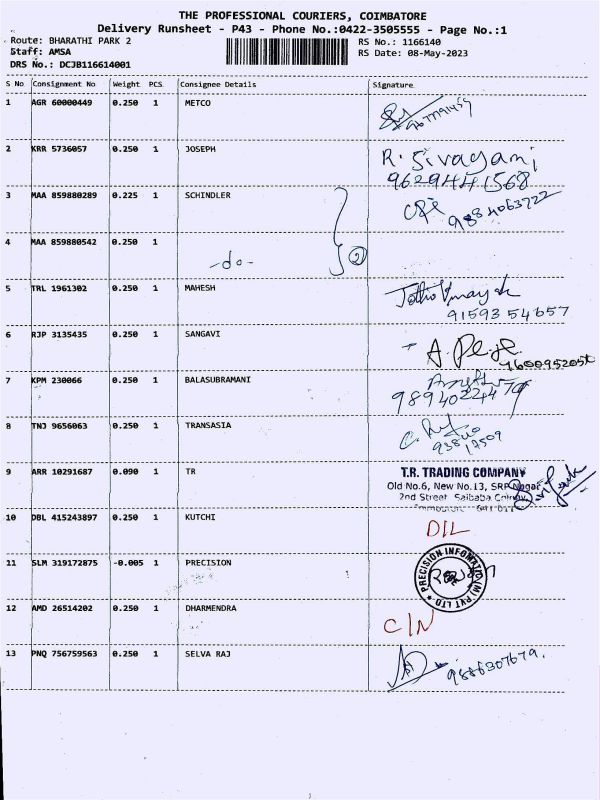 THE PROFESSIONAL COURIERS, COIMBATORE
Delivery Runsheet - P43 - Phone No.:0422-3505555 - Page No.:1
Route: BHARATHI PARK 2
RS No.: 1166140
Staff: AMSA
RS Date: 08-May-2023
DRS No.: DCJB116614001
S No Consignment No Weight PCS Consignee Details Signature
1 AGR 60000449 0.250 1 METCO
2 KRR 5736057 0.250 1 JOSEPH R. Sivagami
9629441568
3 MAA 859880289 0.225 1 SCHINDLER 9884063722
4 MAA 859880542 0.250 1 -do- 2
5 TRL 1961302 0.250 1 MAHESH
91593 54657
6 RJP 3135435 0.250 1 SANGAVI
7 KPM 230066 0.250 1 BALASUBRAMANI
9894022447
8 TNJ 9656063 0.250 1 TRANSASIA
9 ARR 10291687 0.090 1 TR T.R. TRADING COMPANY
Old No.6, New No.13, SRP Nagar
2nd Street Saibaba Colony
10 DBL 415243897 0.250 1 KUTCHI DIL
11 SLM 319172875 -0.005 1 PRECISION PRECISION INFOMATIC (M) PVT LTD
12 AMD 26514202 0.250 1 DHARMENDRA C/N
13 PNQ 756759563 0.250 1 SELVA RAJ 9886307679.